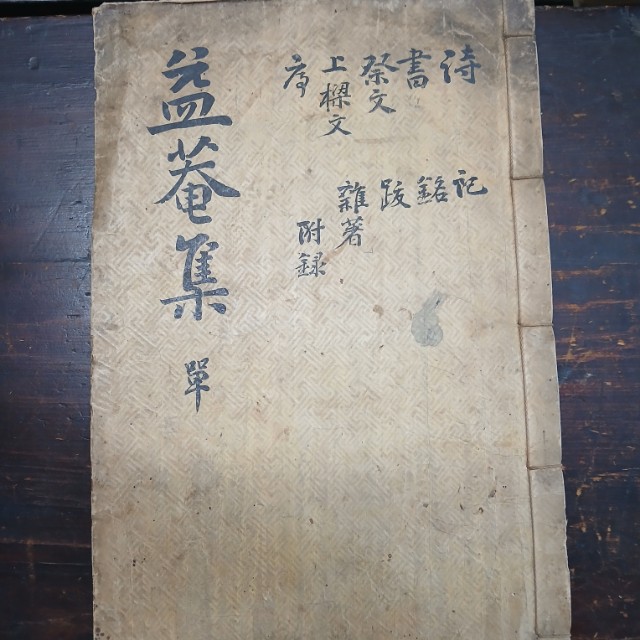 益菴集 單
詩 記
書 銘
祭文 跋
上樑文 雜著
序 附録